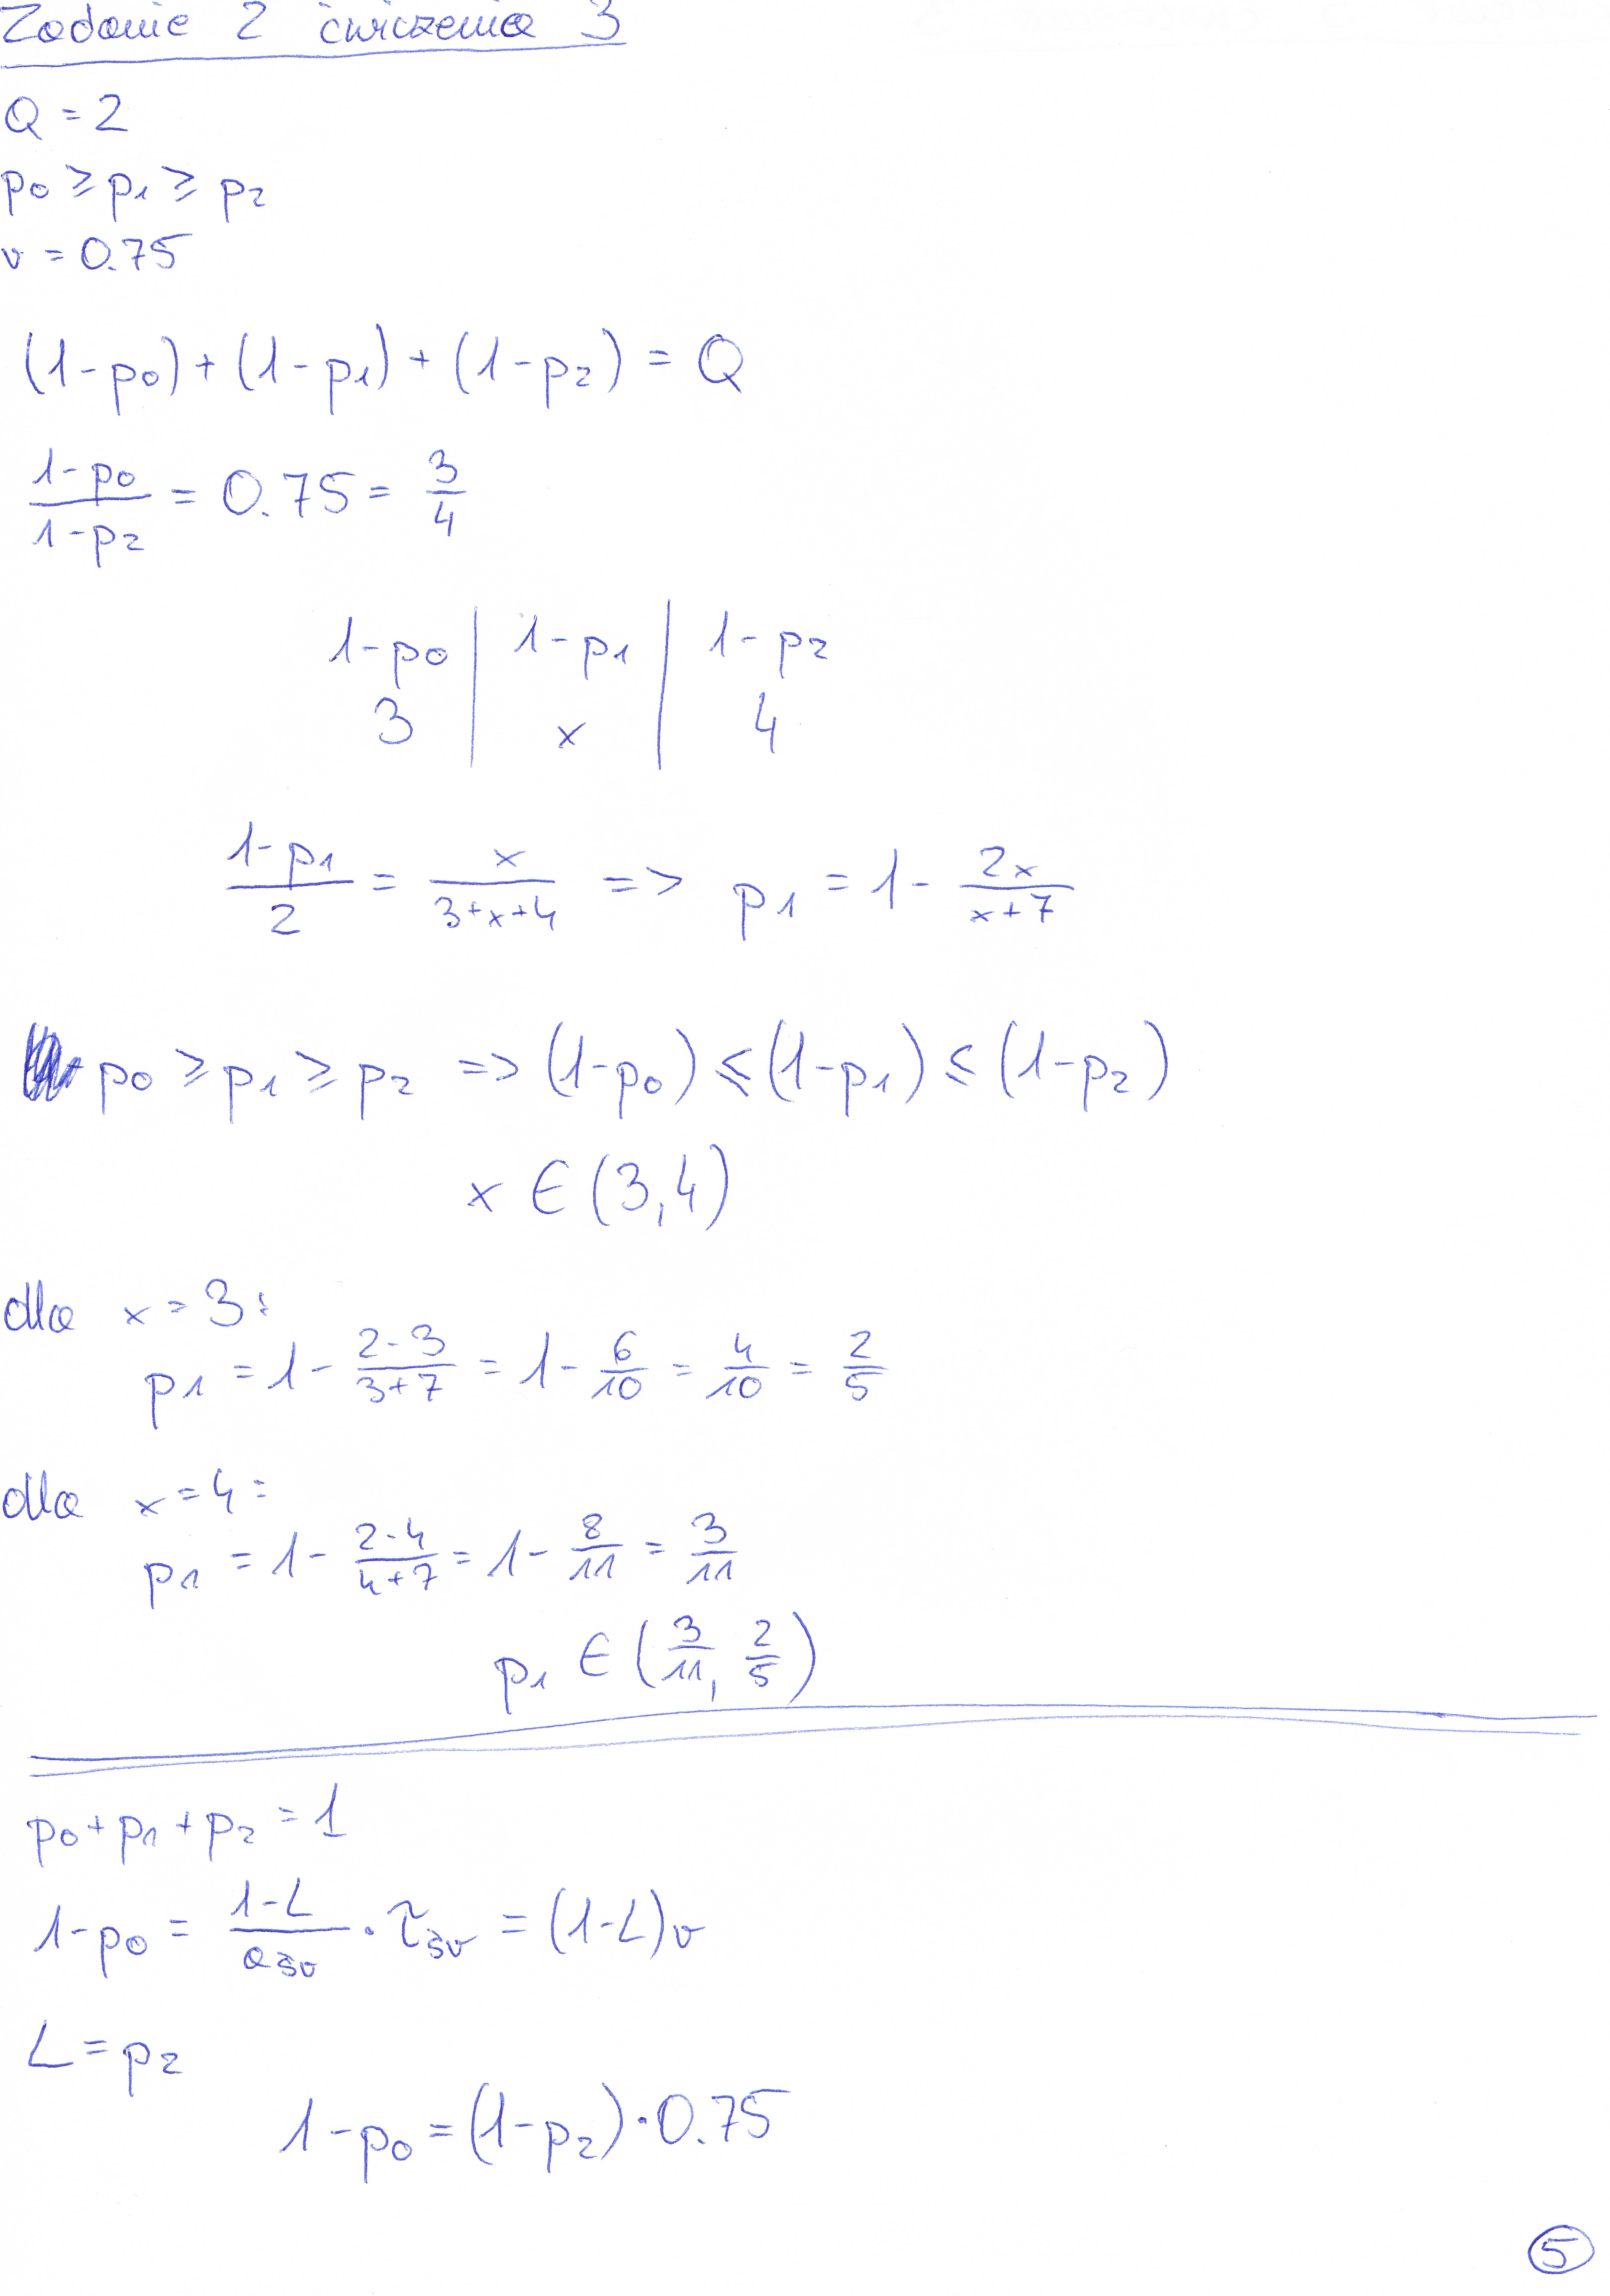 Zadanie 2 ćwiczenia 3
Q = 2
p0 ≥ p1 ≥ p2
v = 0.75
(1-p0) + (1-p1) + (1-p2) = Q
(1-p0)/(1-p2) = 0.75 = 3/4
1-p0 | 1-p1 | 1-p2
3 | x | 4
(1-p1)/2 = x/(3+x+4) => p1 = 1 - 2x/(x+7)
p0 ≥ p1 ≥ p2 => (1-p0) ≤ (1-p1) ≤ (1-p2)
x ∈ (3,4)
dla x = 3:
p1 = 1 - (2·3)/(3+7) = 1 - 6/10 = 4/10 = 2/5
dla x = 4:
p1 = 1 - (2·4)/(4+7) = 1 - 8/11 = 3/11
p1 ∈ (3/11, 2/5)
p0 + p1 + p2 = 1
1-p0 = (1-L)/aśr · τśr = (1-L)v
L = p2
1-p0 = (1-p2)·0.75
5